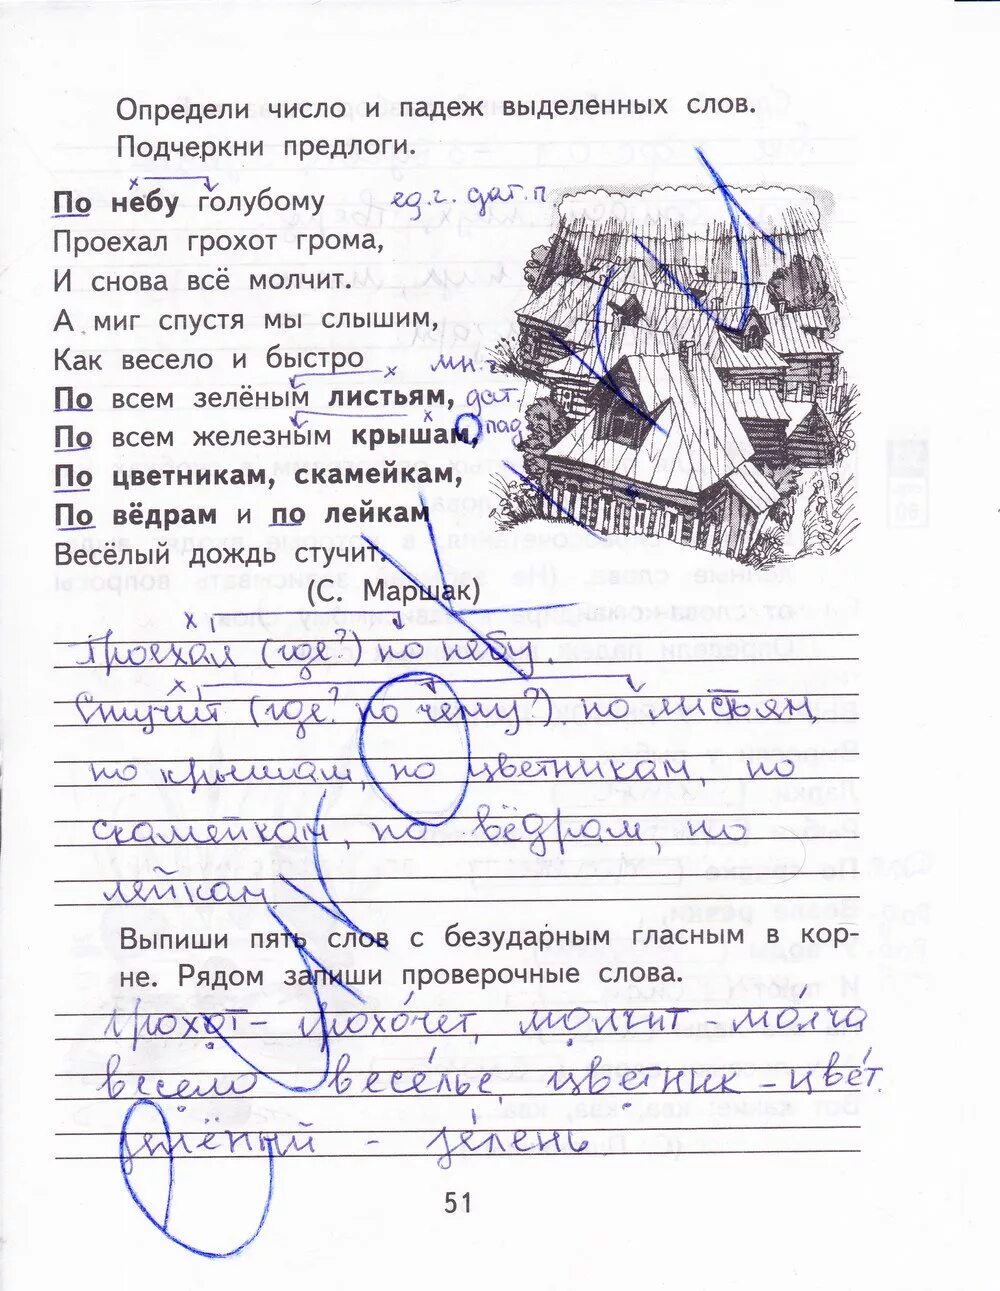 Определи число и падеж выделенных слов.
Подчеркни предлоги.
По небу голубому ед.ч. дат.п
Проехал грохот грома,
И снова всё молчит.
А миг спустя мы слышим,
Как весело и быстро мн.ч
По всем зелёным листьям, дат.
По всем железным крышам, пад
По цветникам, скамейкам,
По вёдрам и по лейкам
Весёлый дождь стучит.
(С. Маршак)
Проехал (где?) по небу.
Стучит (где? по чему?) по листьям,
по крышам, по цветникам, по
скамейкам, по вёдрам, по
лейкам.
Выпиши пять слов с безударным гласным в кор-
не. Рядом запиши проверочные слова.
Грохот - грохо́чет, молчит - мо́лча
весело весе́лье, цветник - цве́т.
зелёный - зе́лень
51